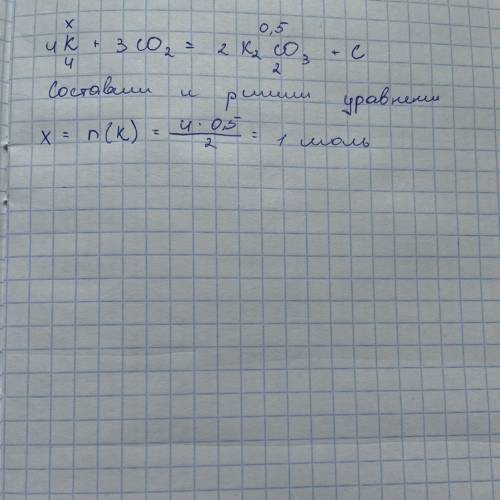 x 0,5
4K + 3CO₂ = 2 K₂CO₃ + C
4 2
Составим и решим уравнение
x = n(K) = 4 · 0,5 / 2 = 1 моль